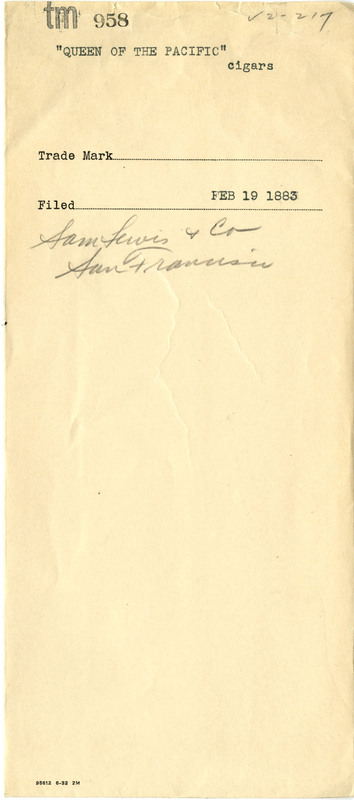 tm 958
V2-217
"QUEEN OF THE PACIFIC"
cigars
Trade Mark
Filed FEB 19 1883
Sam Lewis & Co
San Francisco
95612 6-32 2M